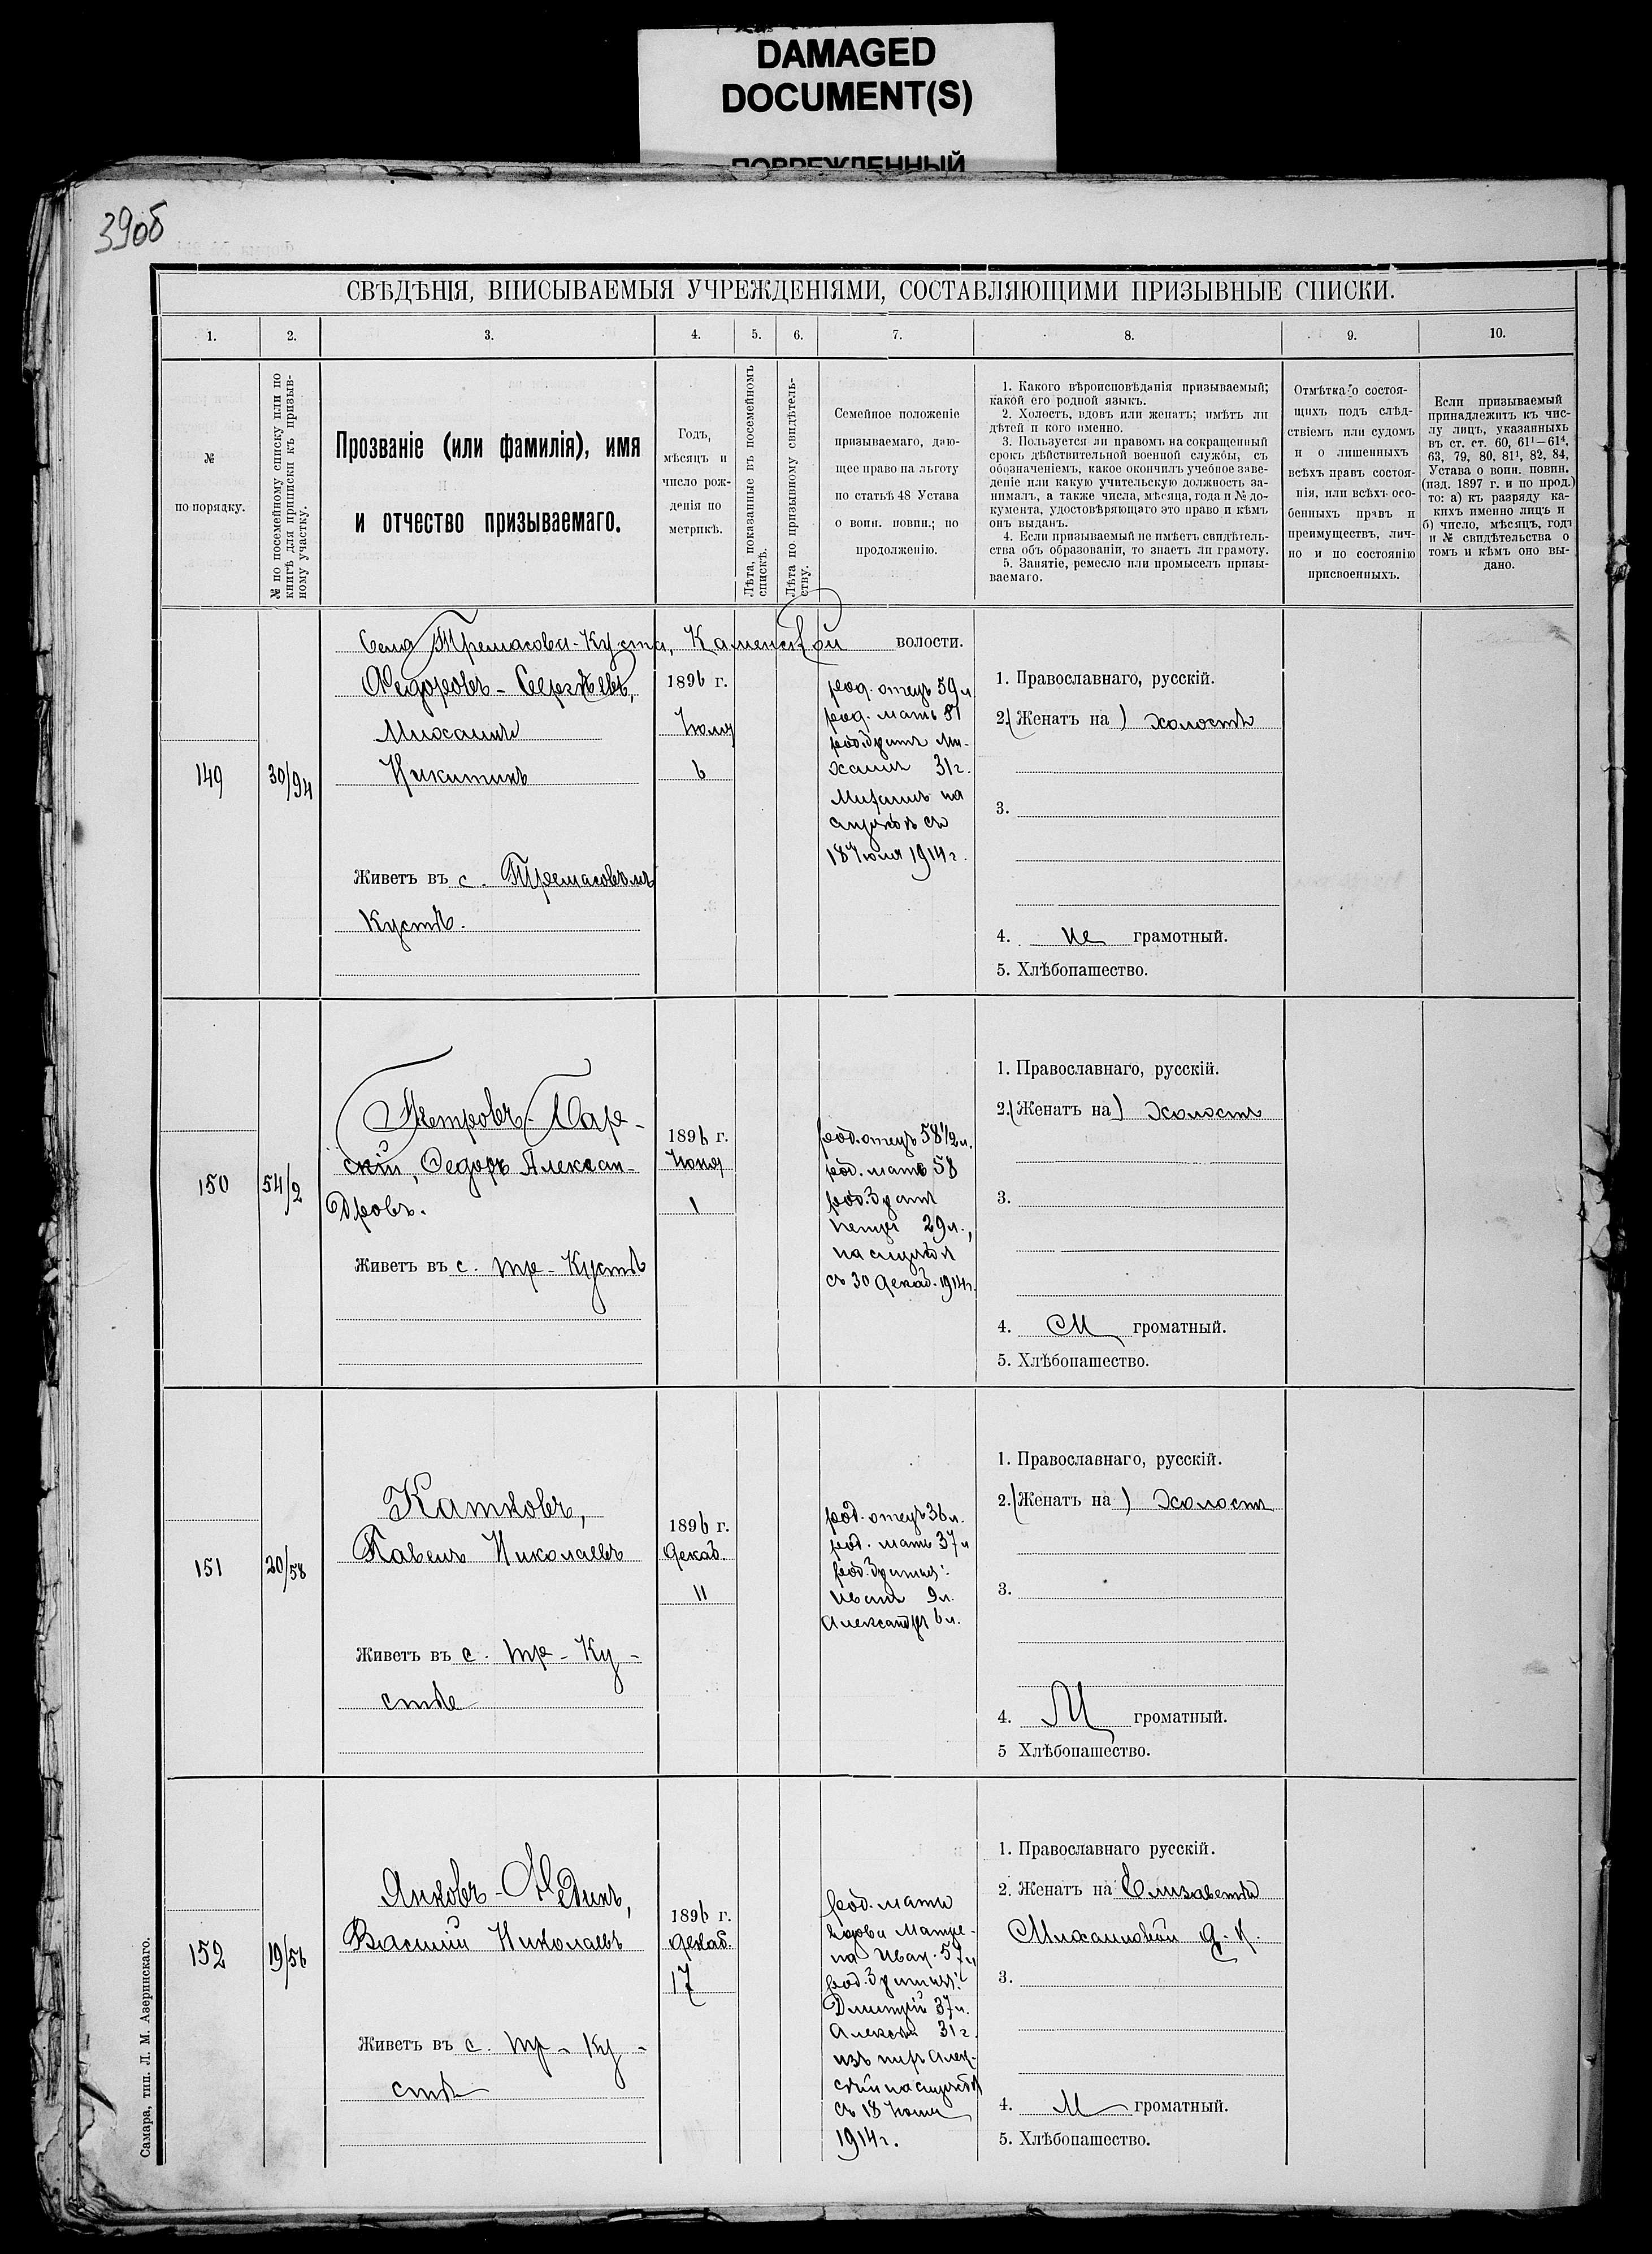 DAMAGED
DOCUMENT(S)
ПОВРЕЖДЕННЫЙ
39об
СВѢДѢНІЯ, ВПИСЫВАЕМЫЯ УЧРЕЖДЕНІЯМИ, СОСТАВЛЯЮЩИМИ ПРИЗЫВНЫЕ СПИСКИ.
1. 2. 3. 4. 5. 6. 7. 8. 9. 10.
№
по порядку.
№ по посемейному списку или по
книгѣ для приписки къ призыв-
ному участку.
Прозваніе (или фамилія), имя
и отчество призываемаго.
Годъ,
мѣсяцъ и
число рож-
денія по
метрикѣ.
Лѣта, показанные въ посемейномъ
спискѣ.
Лѣта по призывному свидѣтель-
ству.
Семейное положеніе
призываемаго, даю-
щее право на льготу
по статьѣ 48 Устава
о воин. повин.; по
продолженію.
1. Какого вѣроисповѣданія призываемый;
какой его родной языкъ.
2. Холостъ, вдовъ или женатъ; имѣтъ ли
дѣтей и кого именно.
3. Пользуется ли правомъ на сокращенный
срокъ дѣйствительной военной службы, съ
обозначеніемъ, какое окончилъ учебное заве-
деніе или какую учительскую должность за-
нималъ, а также числа, мѣсяца, года и № до-
кумента, удостовѣряющаго это право и кѣмъ
онъ выданъ.
4. Если призываемый не имѣетъ свидѣтель-
ства объ образованіи, то знаетъ ли грамоту.
5. Занятіе, ремесло или промыселъ призы-
ваемаго.
Отмѣтка о состоя-
щихъ подъ слѣд-
ствіемъ или судомъ
и о лишенныхъ
всѣхъ правъ состоя-
нія, или всѣхъ осо-
бенныхъ правъ и
преимуществъ, лич-
но и по состоянію
присвоенныхъ.
Если призываемый
принадлежитъ къ чис-
лу лицъ, указанныхъ
въ ст. ст. 60, 61¹—61⁴,
63, 79, 80, 81¹, 82, 84,
Устава о воин. повин.
(изд. 1897 г. и по прод.)
то: а) къ разряду ка-
кихъ именно лицъ и
б) число, мѣсяцъ, годъ
и № свидѣтельства о
томъ и кѣмъ оно вы-
дано.
Села Тремасова-Куста, Каменской волости.
149
30/94
Федоровъ-Сергѣевъ,
Михаилъ
Никитинъ
Живетъ въ с. Тремасовомъ
Кустѣ.
1896 г.
Іюля
6
род. отецъ 59 л.
род. мать 57
род. братъ Ми-
хаилъ 31 г.
Михаилъ на
службѣ съ
18 Іюля 1914 г.
1. Православнаго, русскій.
2. (Женатъ на) холостъ
3.
4. не грамотный.
5. Хлѣбопашество.
150
54/2
Петровъ-Бар-
скій, Федоръ Алексан-
дровъ.
Живетъ въ с. Тр-Кустѣ
1896 г.
Іюня
1
род. отецъ 58 1/2 л.
род. мать 58
род. братъ
Петръ 29 л.,
на службѣ
съ 30 Декаб. 1914 г.
1. Православнаго, русскій.
2. (Женатъ на) Холостъ
3.
4. М громатный.
5. Хлѣбопашество.
151
20/58
Катковъ,
Павелъ Николаевъ
Живетъ въ с. Тр-Ку-
стѣ
1896 г.
Декаб.
11
род. отецъ 36 л.
род. мать 37 л
род. братья:
Иванъ 9 л.
Александръ 6 л.
1. Православнаго, русскій.
2. (Женатъ на) Холостъ
3.
4. М громатный.
5 Хлѣбопашество.
152
19/56
Янковъ-Фединъ,
Василій Николаевъ
Живетъ въ с. Тр-Ку-
стѣ
1896 г.
Декаб.
17
род. мать
вдова Матре-
на Иван. 57 л
род. братья:
Дмитрій 37 л.
Алексѣй 31 г.
изъ нихъ Алек-
сѣй на службѣ
съ 18 Іюля
1914 г.
1. Православнаго русскій.
2. Женатъ на Елизаветѣ
Михаиловой
3.
4. М громатный.
5. Хлѣбопашество.
Самара, тип. Л. М. Азеринскаго.